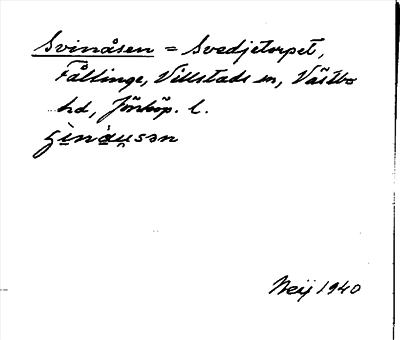 Svinåsen = Svedjetorpet,
Fållinge, Villstads sn, Västbo
hd, Jönköp. l.
Neij 1940